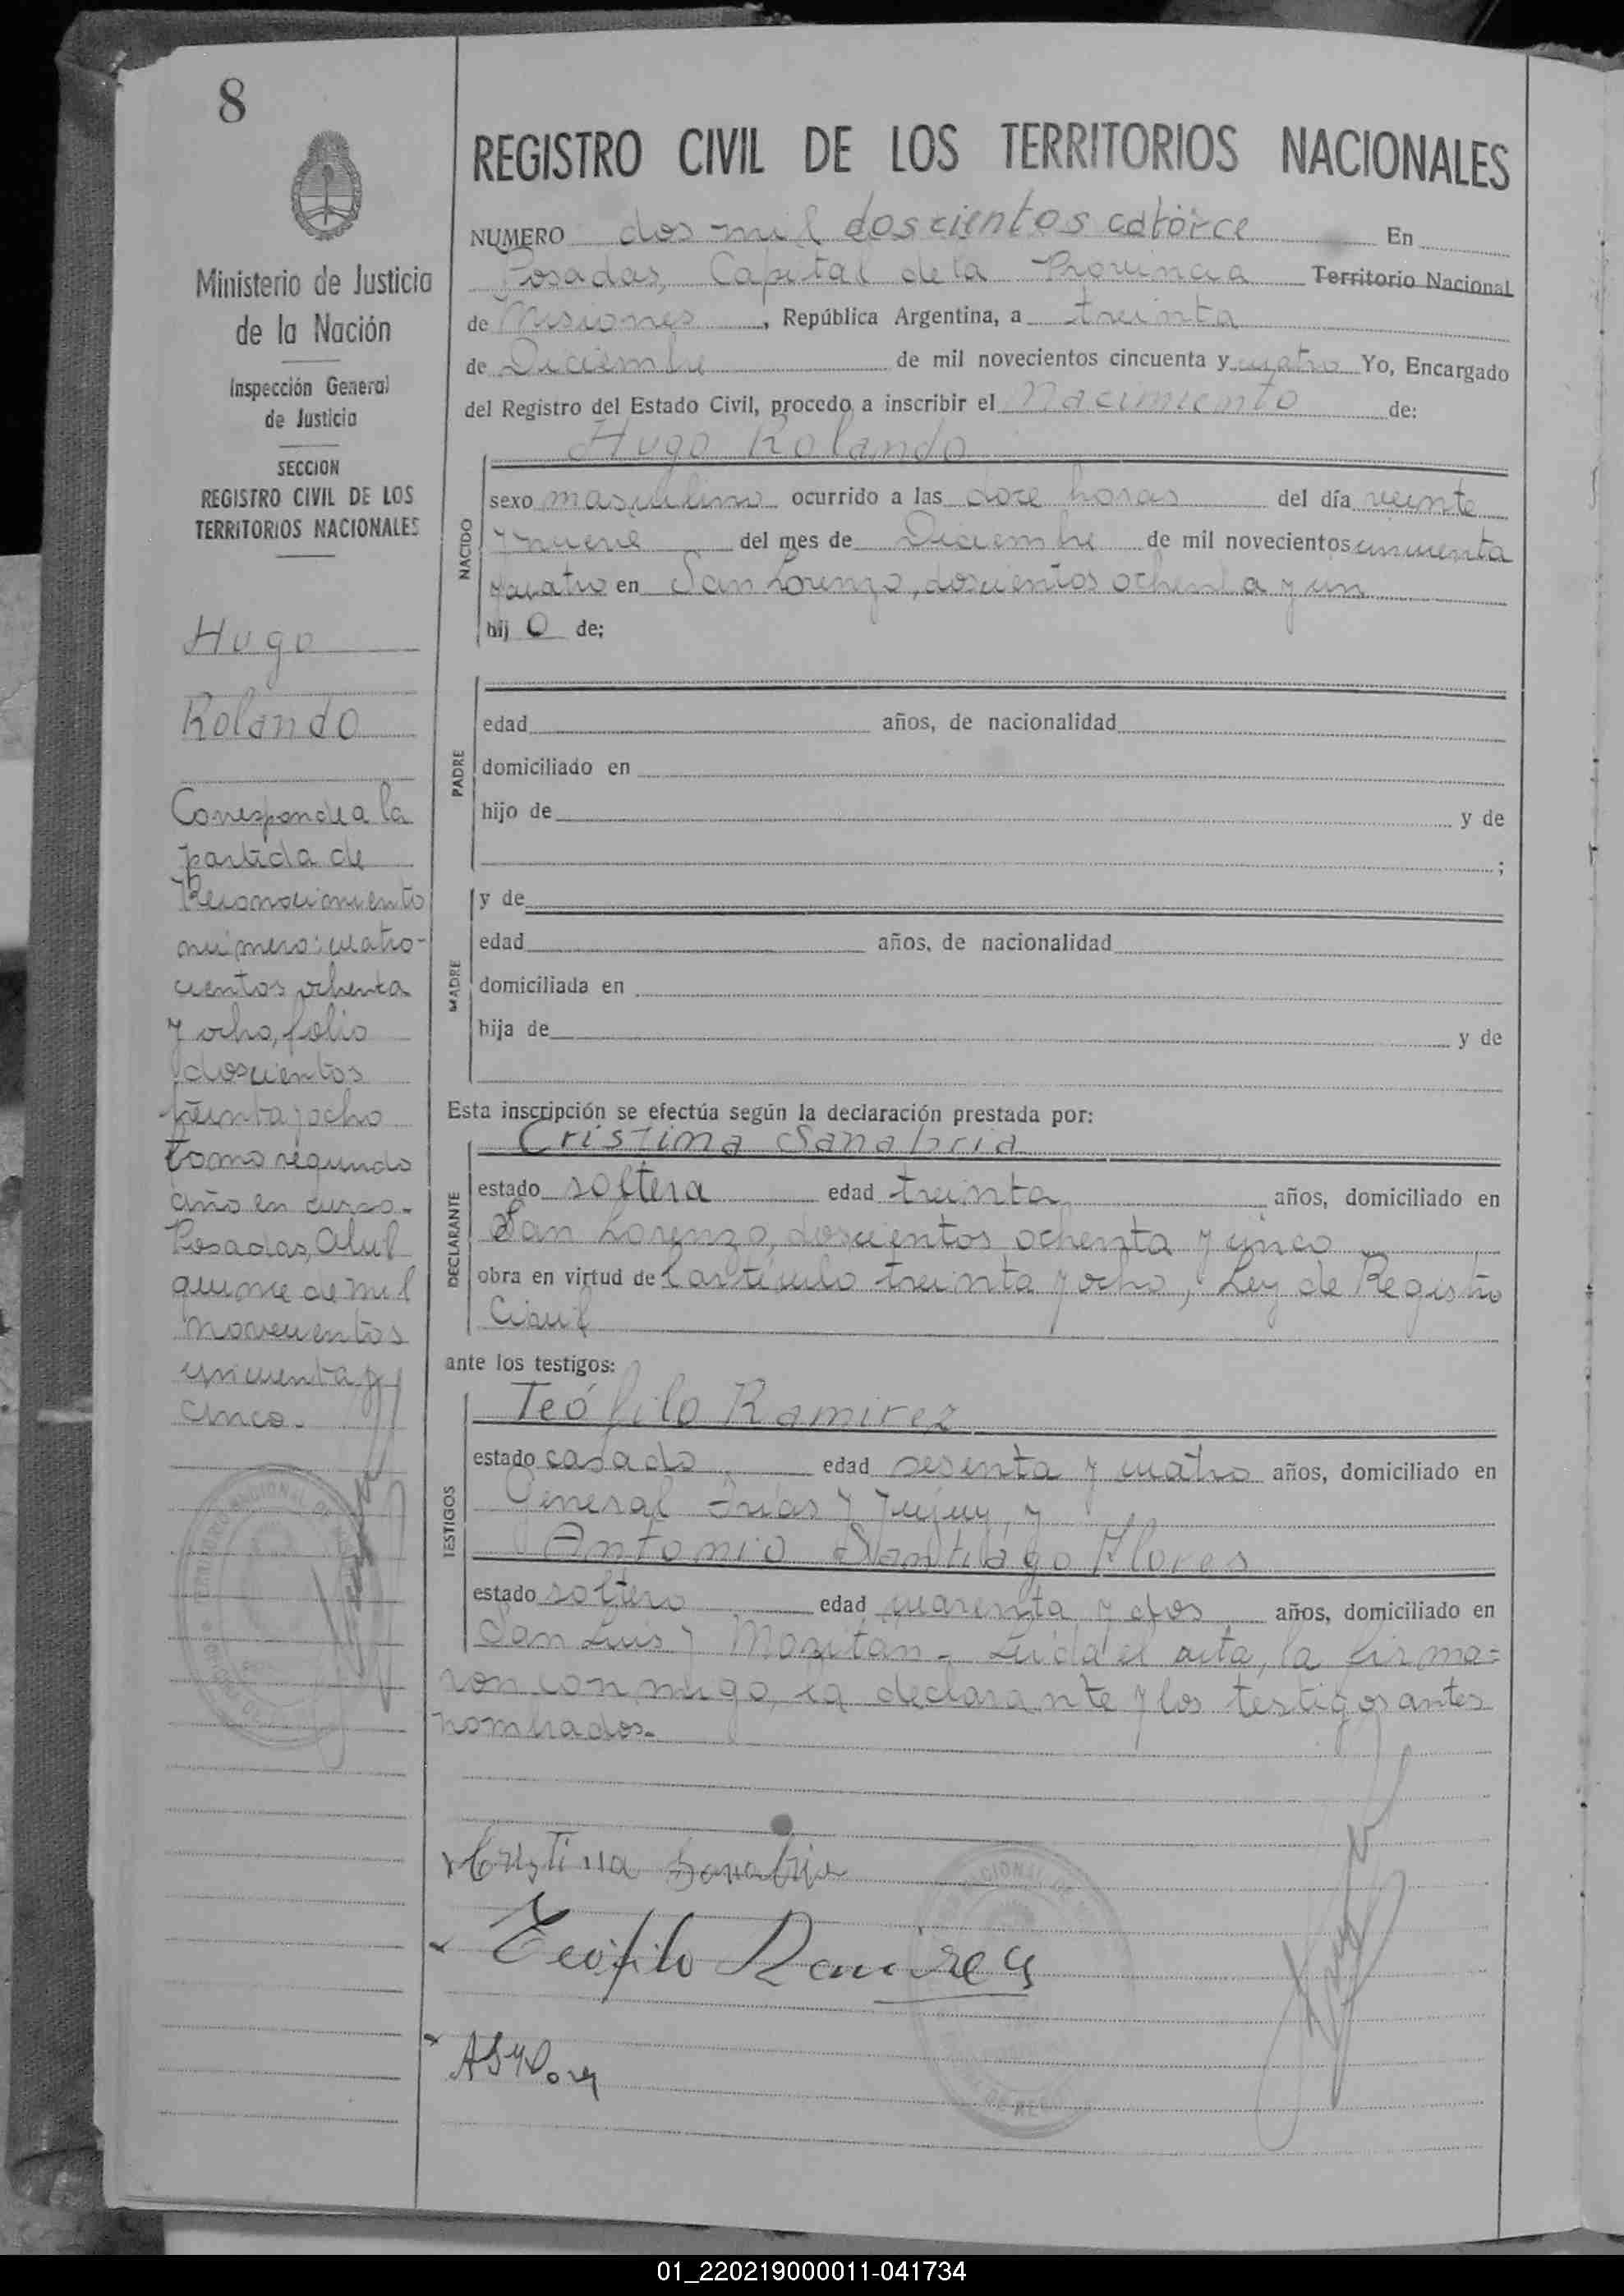 8
Ministerio de Justicia
de la Nación
Inspección General
de Justicia
SECCION
REGISTRO CIVIL DE LOS
TERRITORIOS NACIONALES
Hugo
Rolando
Corresponde a la
partida de
Reconocimiento
número: cuatro-
cientos ochenta
y ocho, folio
doscientos
treinta y ocho
tomo segundo
año en curso.
Posadas, Abril
quince de mil
novecientos
cincuenta y
cinco.
REGISTRO CIVIL DE LOS TERRITORIOS NACIONALES
NUMERO dos mil doscientos catorce En
Posadas, Capital de la Provincia Territorio Nacional
de Misiones, República Argentina, a treinta
de Diciembre de mil novecientos cincuenta y cuatro Yo, Encargado
del Registro del Estado Civil, procedo a inscribir el Nacimiento de:
Hugo Rolando
NACIDO
sexo masculino ocurrido a las doce horas del día veinte
y nueve del mes de Diciembre de mil novecientos cincuenta
y cuatro en San Lorenzo, doscientos ochenta y un
hij o de;
PADRE
edad años, de nacionalidad
domiciliado en
hijo de y de
;
MADRE
y de
edad años, de nacionalidad
domiciliada en
hija de y de
Esta inscripción se efectúa según la declaración prestada por:
DECLARANTE
Cristina Sanabria
estado soltera edad treinta años, domiciliado en
San Lorenzo, doscientos ochenta y cinco
obra en virtud de l artículo treinta y ocho, Ley de Registro
Civil
ante los testigos:
TESTIGOS
Teófilo Ramirez
estado casado edad sesenta y cuatro años, domiciliado en
General Frias y Jujuy, y
Antonio Santiago Flores
estado soltero edad cuarenta y dos años, domiciliado en
San Luis y - Leída el acta, la firma=
ron conmigo, la declarante y los testigos antes
nombrados.-
Cristina Sanabria
Teofilo Ramirez
01_220219000011-041734